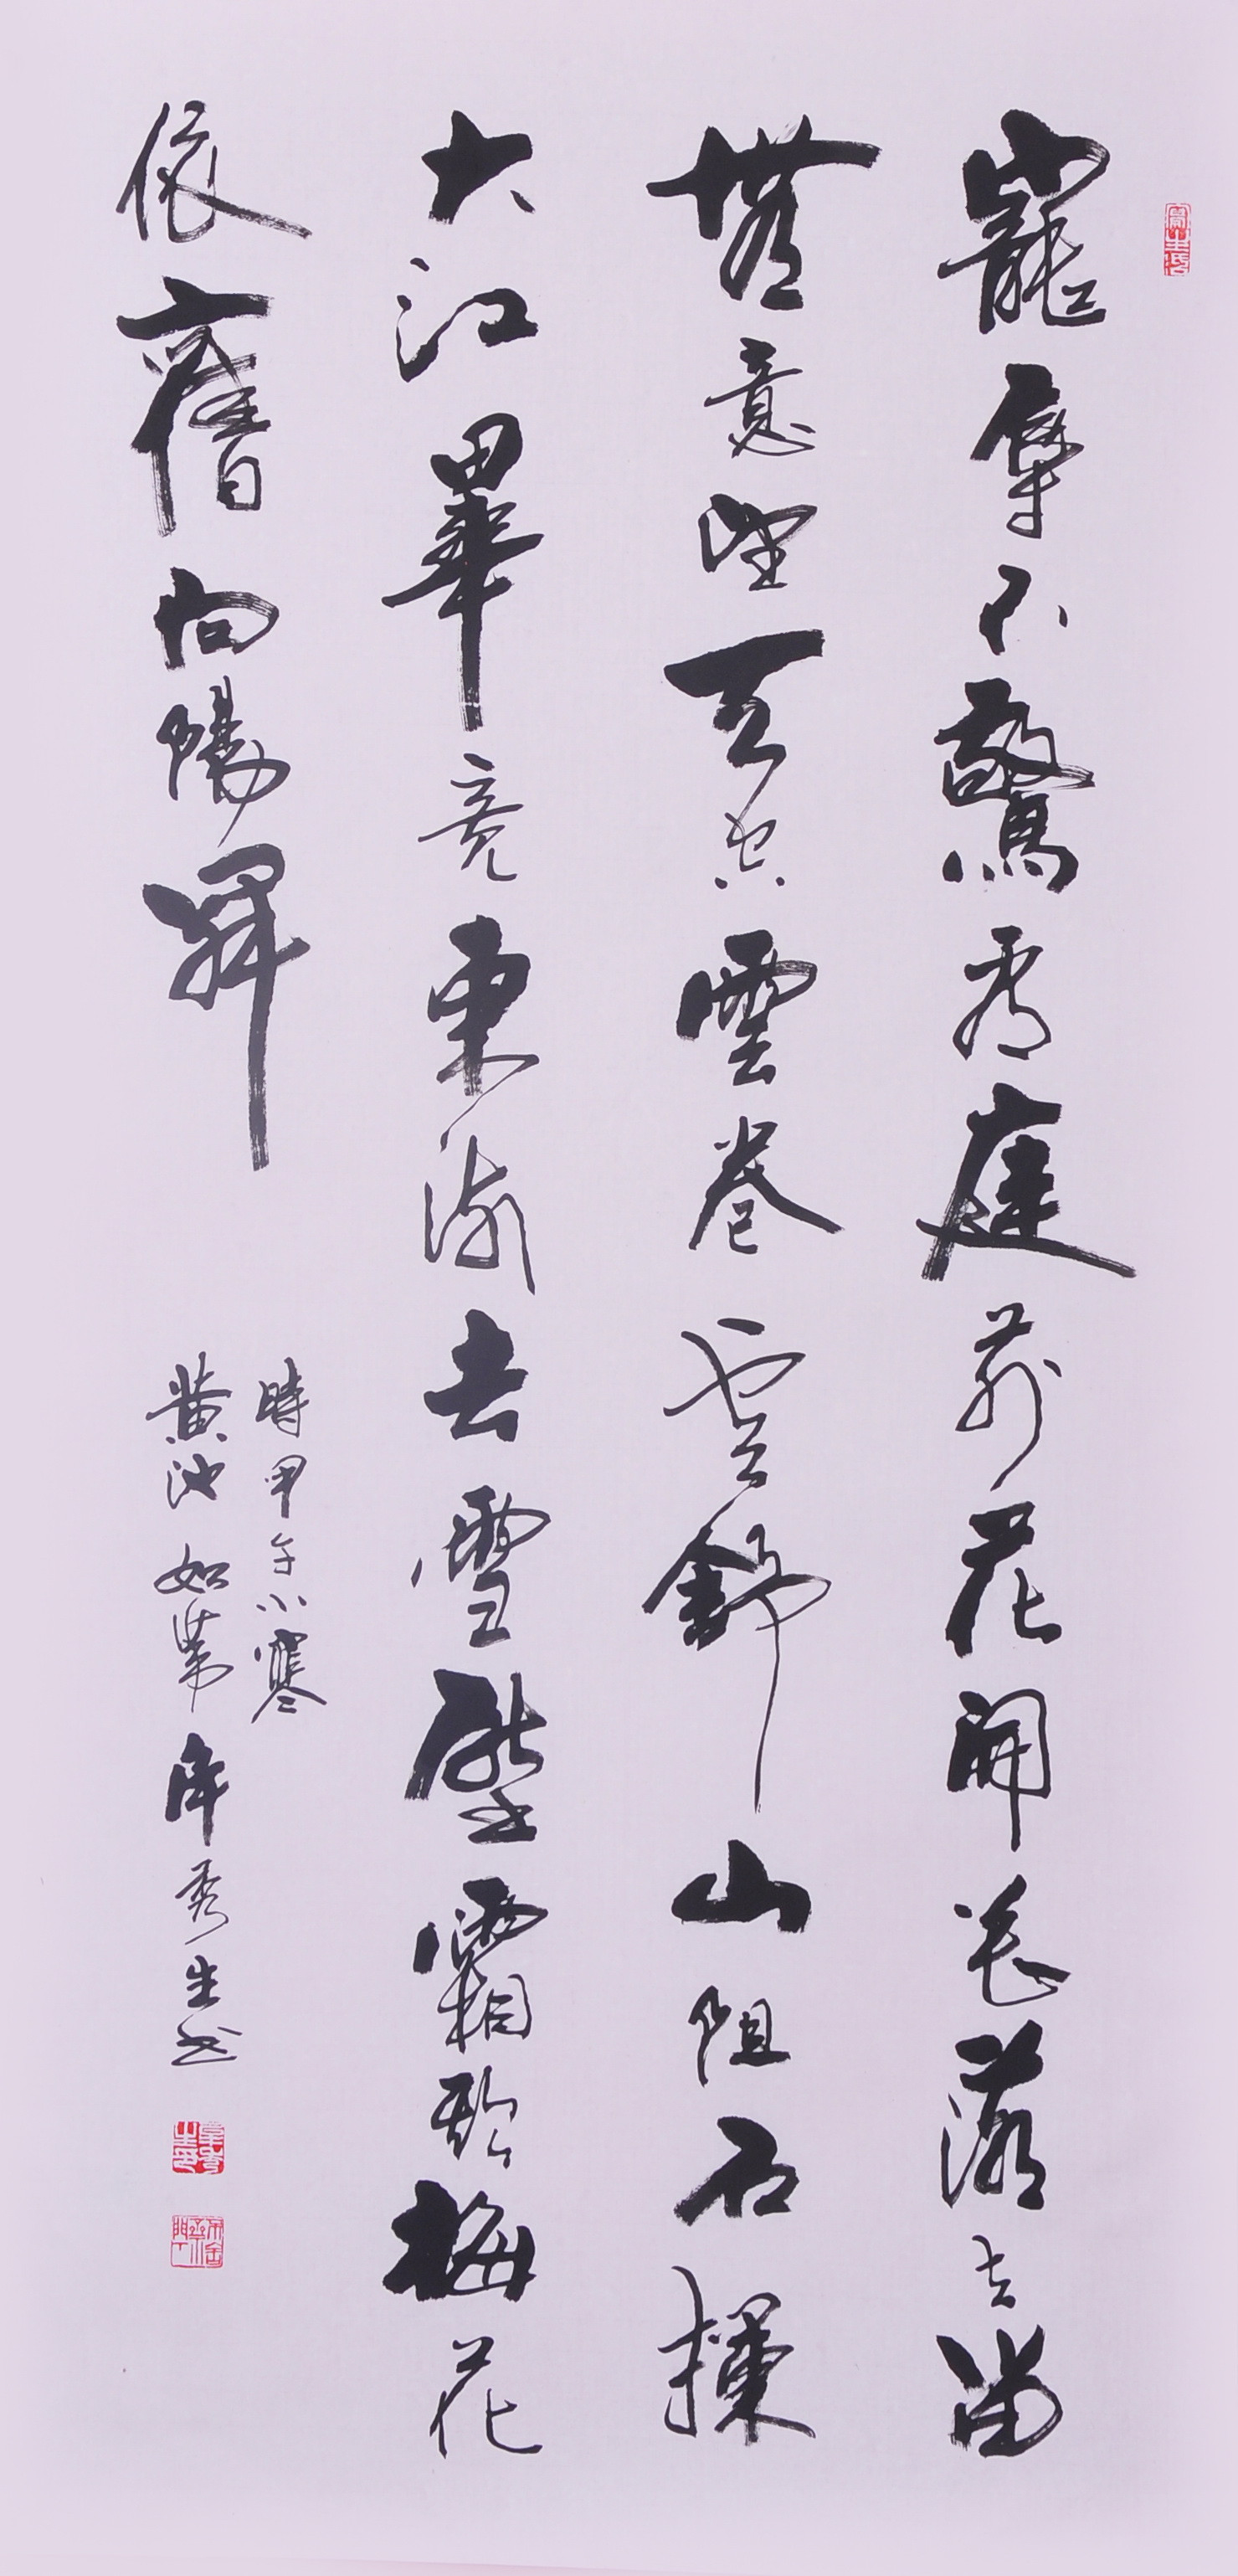 寵辱不驚看庭前花開花落去留
無意望天空雲卷雲舒山阻石攔
大江畢竟東流去雪壓霜欺梅花
依舊向陽開
時甲午小寒
黃池如葦軒秀生書